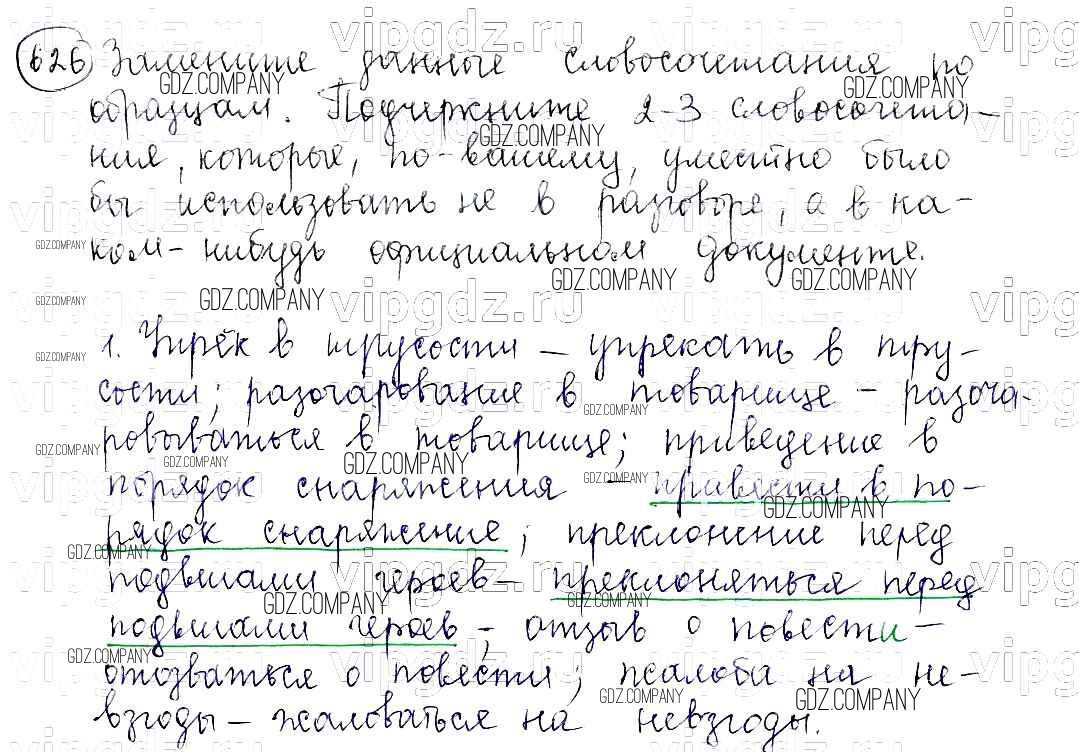 626 Замените данные словосочетания по
образцам. Подчеркните 2-3 словосочета-
ния, которые, по-вашему, уместно было
бы использовать не в разговоре, а в ка-
ком-нибудь официальном документе.
1. Упрёк в трусости – упрекать в тру-
сости; разочарование в товарище – разоча-
ровываться в товарище; приведение в
порядок снаряжения – привести в по-
рядок снаряжение; преклонение перед
подвигами героев – преклоняться перед
подвигами героев; отзыв о повести –
отозваться о повести; жалоба на не-
взгоды – жаловаться на невзгоды.